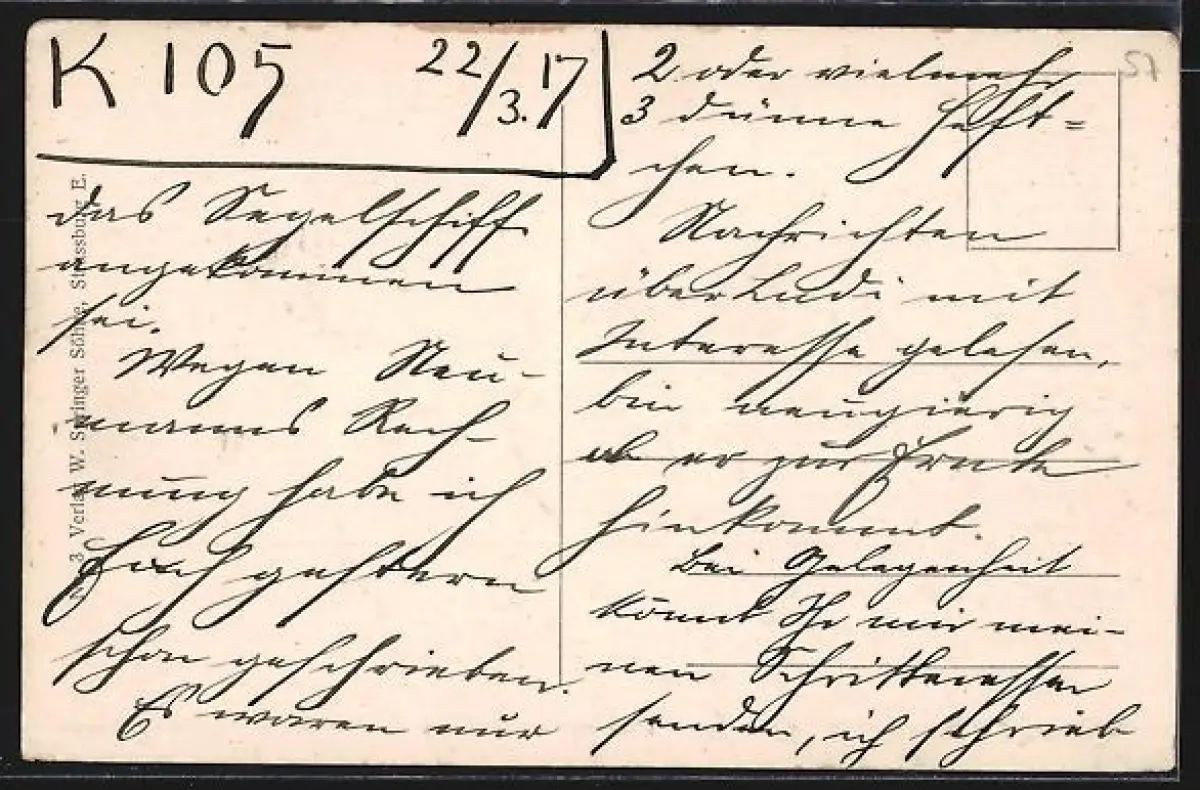 K 105 22/3.17
das Segelschiff
angekommen
sei.
Wegen Neu-
manns Rech-
nung habe ich
Euch gestern
schon geschrieben.
Es waren nur
2 oder vielmehr
3 dünne Heft-
chen.
Nachrichten
über Ludi mit
Interesse gelesen,
bin neugierig
ob er zur Ernte
hinkommt.
Bei Gelegenheit
könnt Ihr mir mei-
nen Schrittmesser
senden, ich schrieb
3 Verlag W. Springer Söhne, Strassburg E.
57